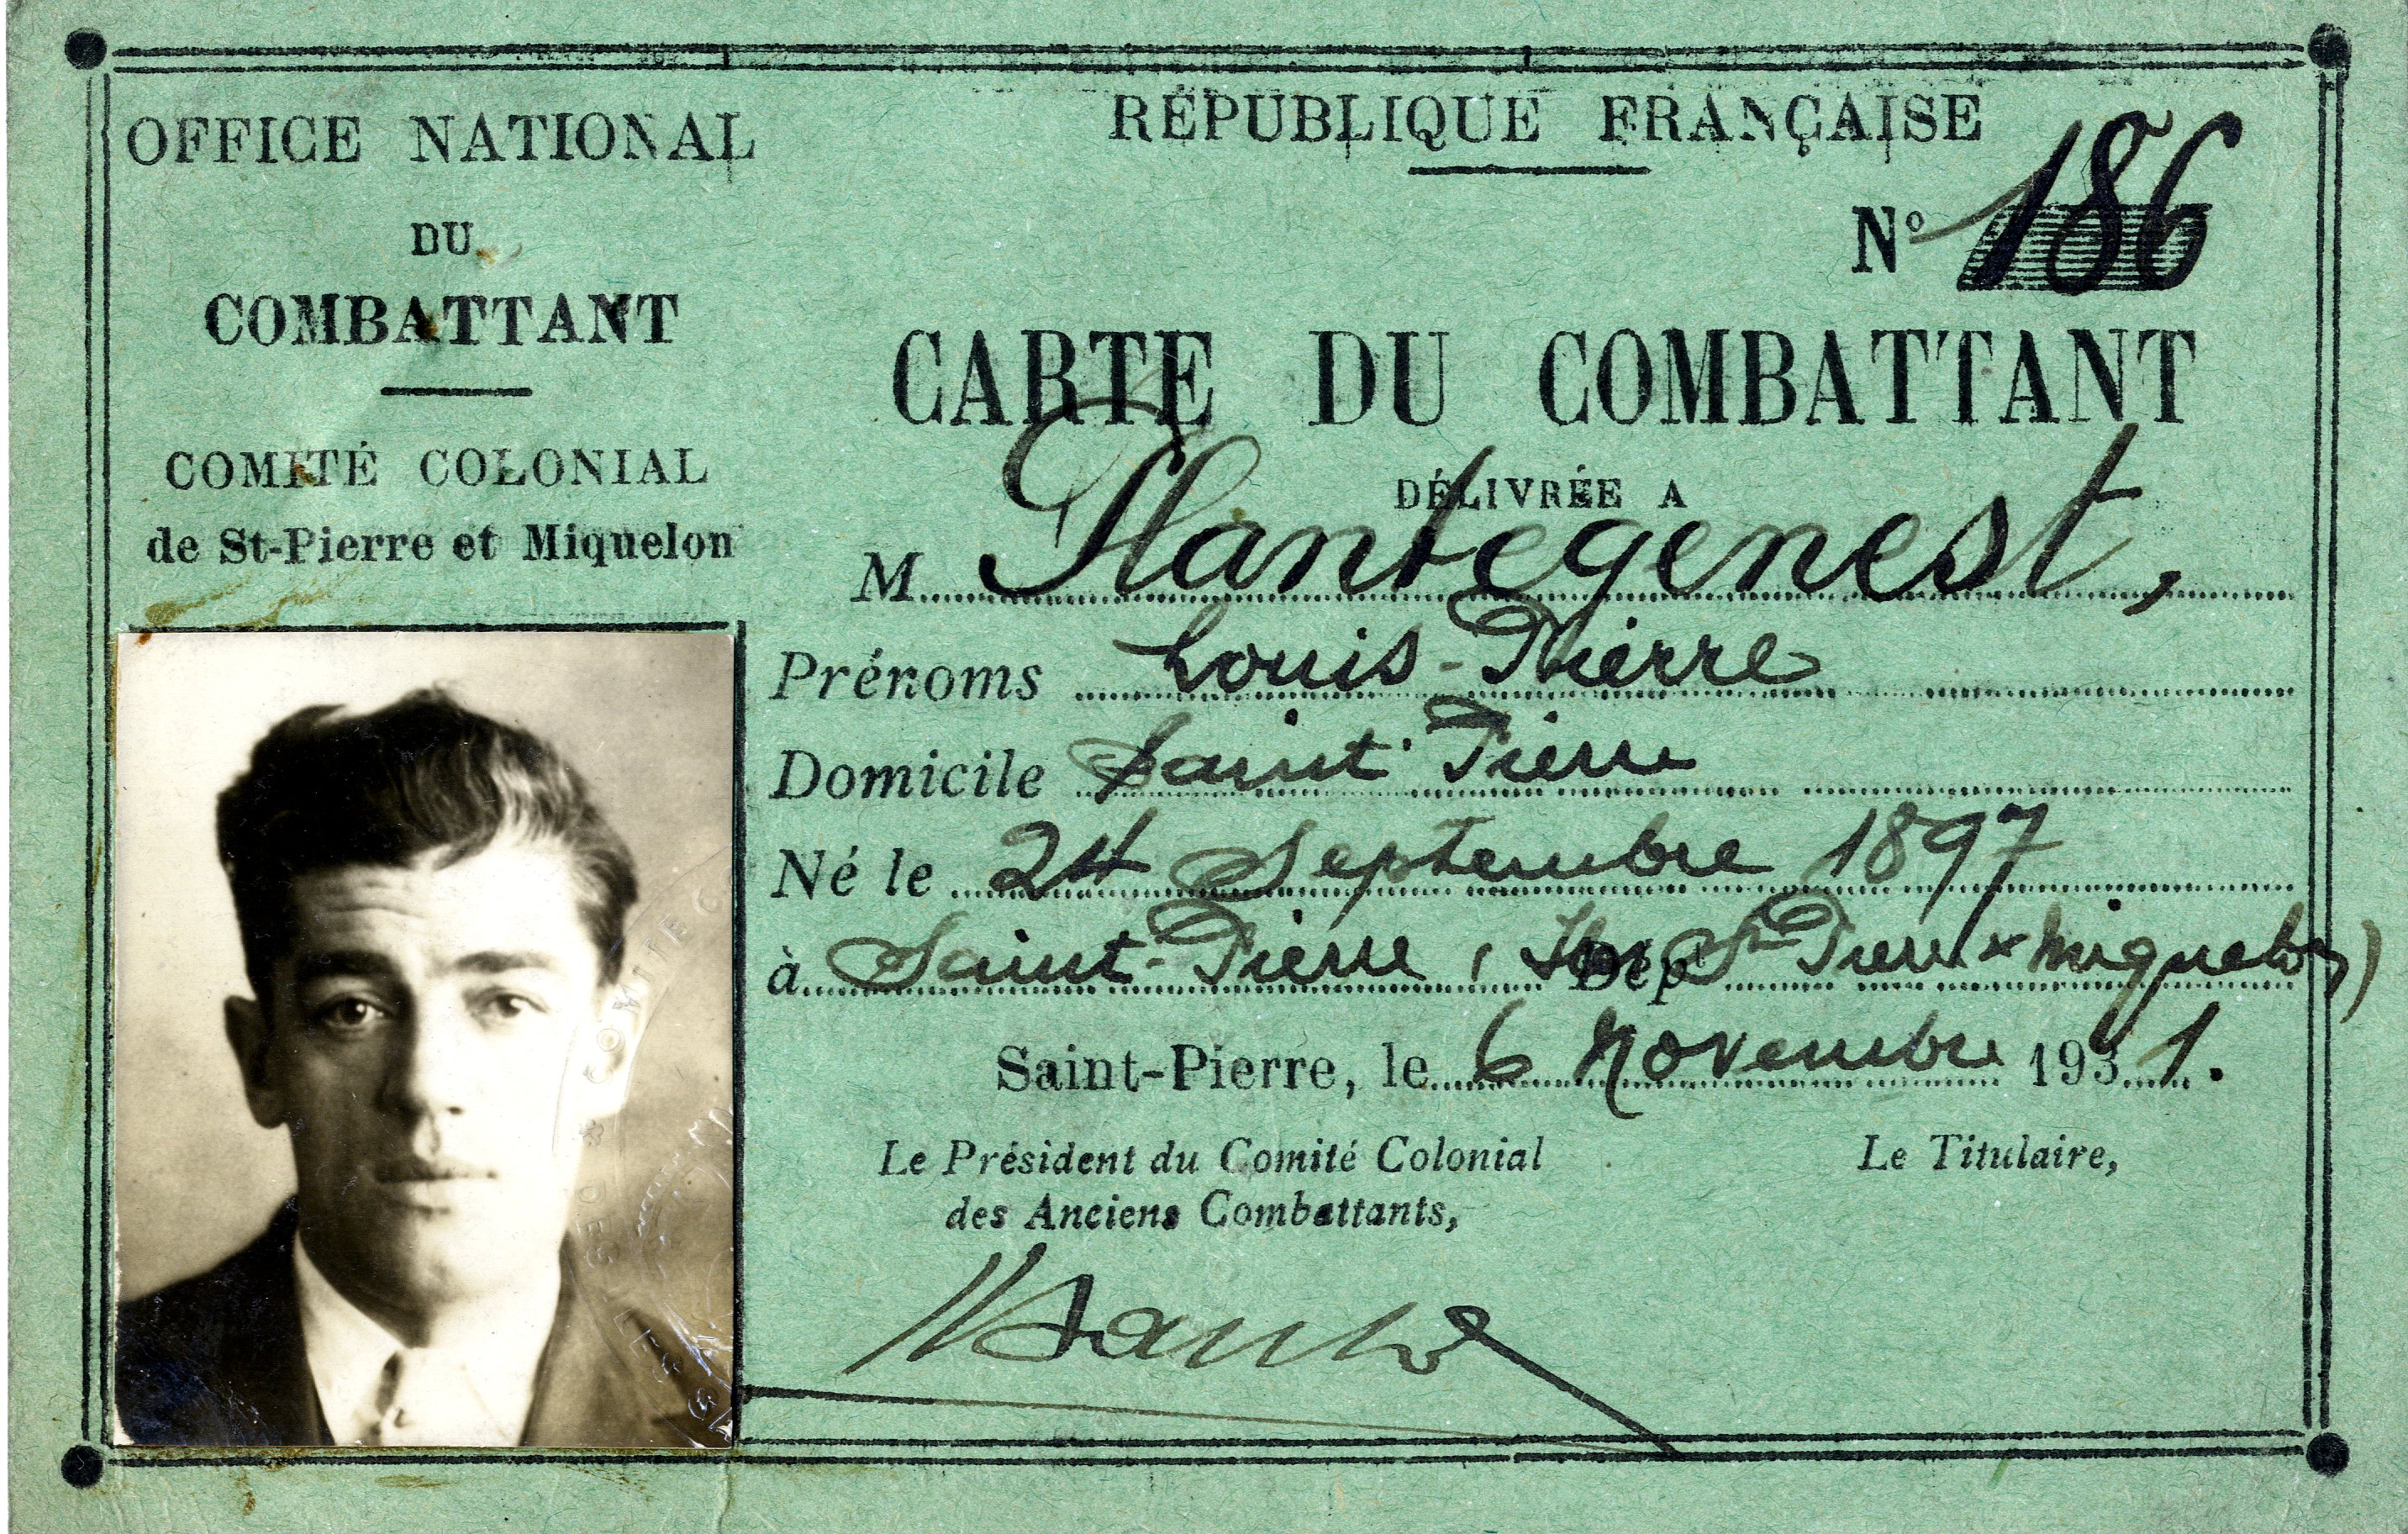 OFFICE NATIONAL
DU
COMBATTANT
COMITÉ COLONIAL
de St-Pierre et Miquelon
RÉPUBLIQUE FRANÇAISE
Nº 186
CARTE DU COMBATTANT
DÉLIVRÉE A
M. Plantegenest,
Prénoms Louis-Pierre
Domicile Saint Pierre
Né le 24 Septembre 1897
à Saint-Pierre, Dép Pierre & Miquelon)
Saint-Pierre, le 6 Novembre 1931.
Le Président du Comité Colonial
des Anciens Combattants,
Le Titulaire,
COMITE C
DES